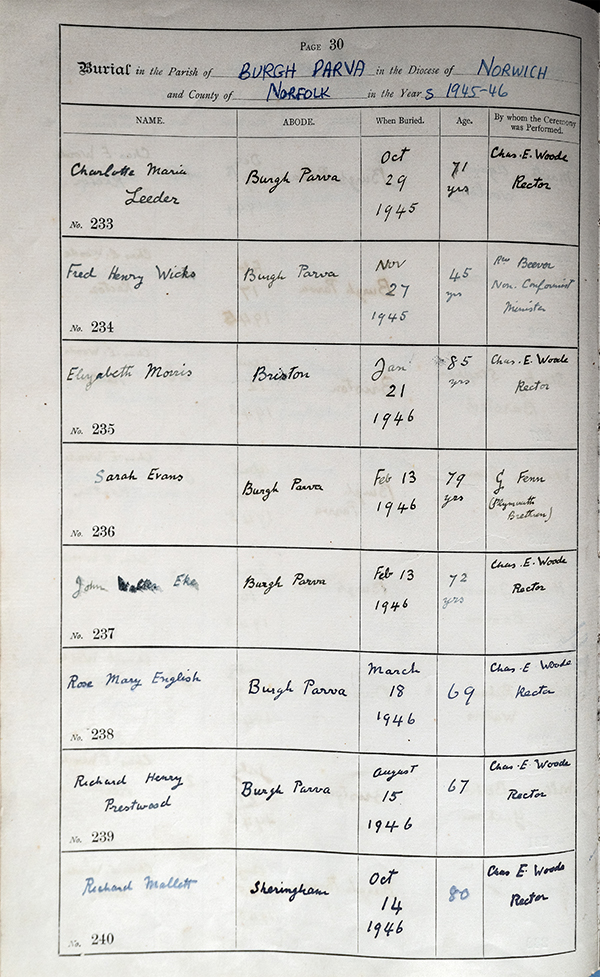 PAGE 30
Burial in the Parish of BURGH PARVA in the Diocese of NORWICH
and County of NORFOLK in the Years 1945-46
NAME. ABODE. When Buried. Age. By whom the Ceremony was Performed.
Charlotte Maria
Leeder
No. 233
Burgh Parva
Oct
29
1945
71
yrs
Chas. E. Woode
Rector
Fred Henry Wicks
No. 234
Burgh Parva
Nov
27
1945
45
yrs
Rev Beever
Non. Conformist
Minister
Elizabeth Morris
No. 235
Briston
Jan
21
1946
85
yrs
Chas. E. Woode
Rector
Sarah Evans
No. 236
Burgh Parva
Feb 13
1946
79
yrs
G Fenn
(Plymouth
Brethren)
John Walter Eke
No. 237
Burgh Parva
Feb 13
1946
72
yrs
Chas. E. Woode
Rector
Rose Mary English
No. 238
Burgh Parva
March
18
1946
69
Chas. E Woode
Rector
Richard Henry
Prestwood
No. 239
Burgh Parva
August
15
1946
67
Chas. E. Woode
Rector
Richard Mallett
No. 240
Sheringham
Oct
14
1946
80
Chas E. Woode
Rector